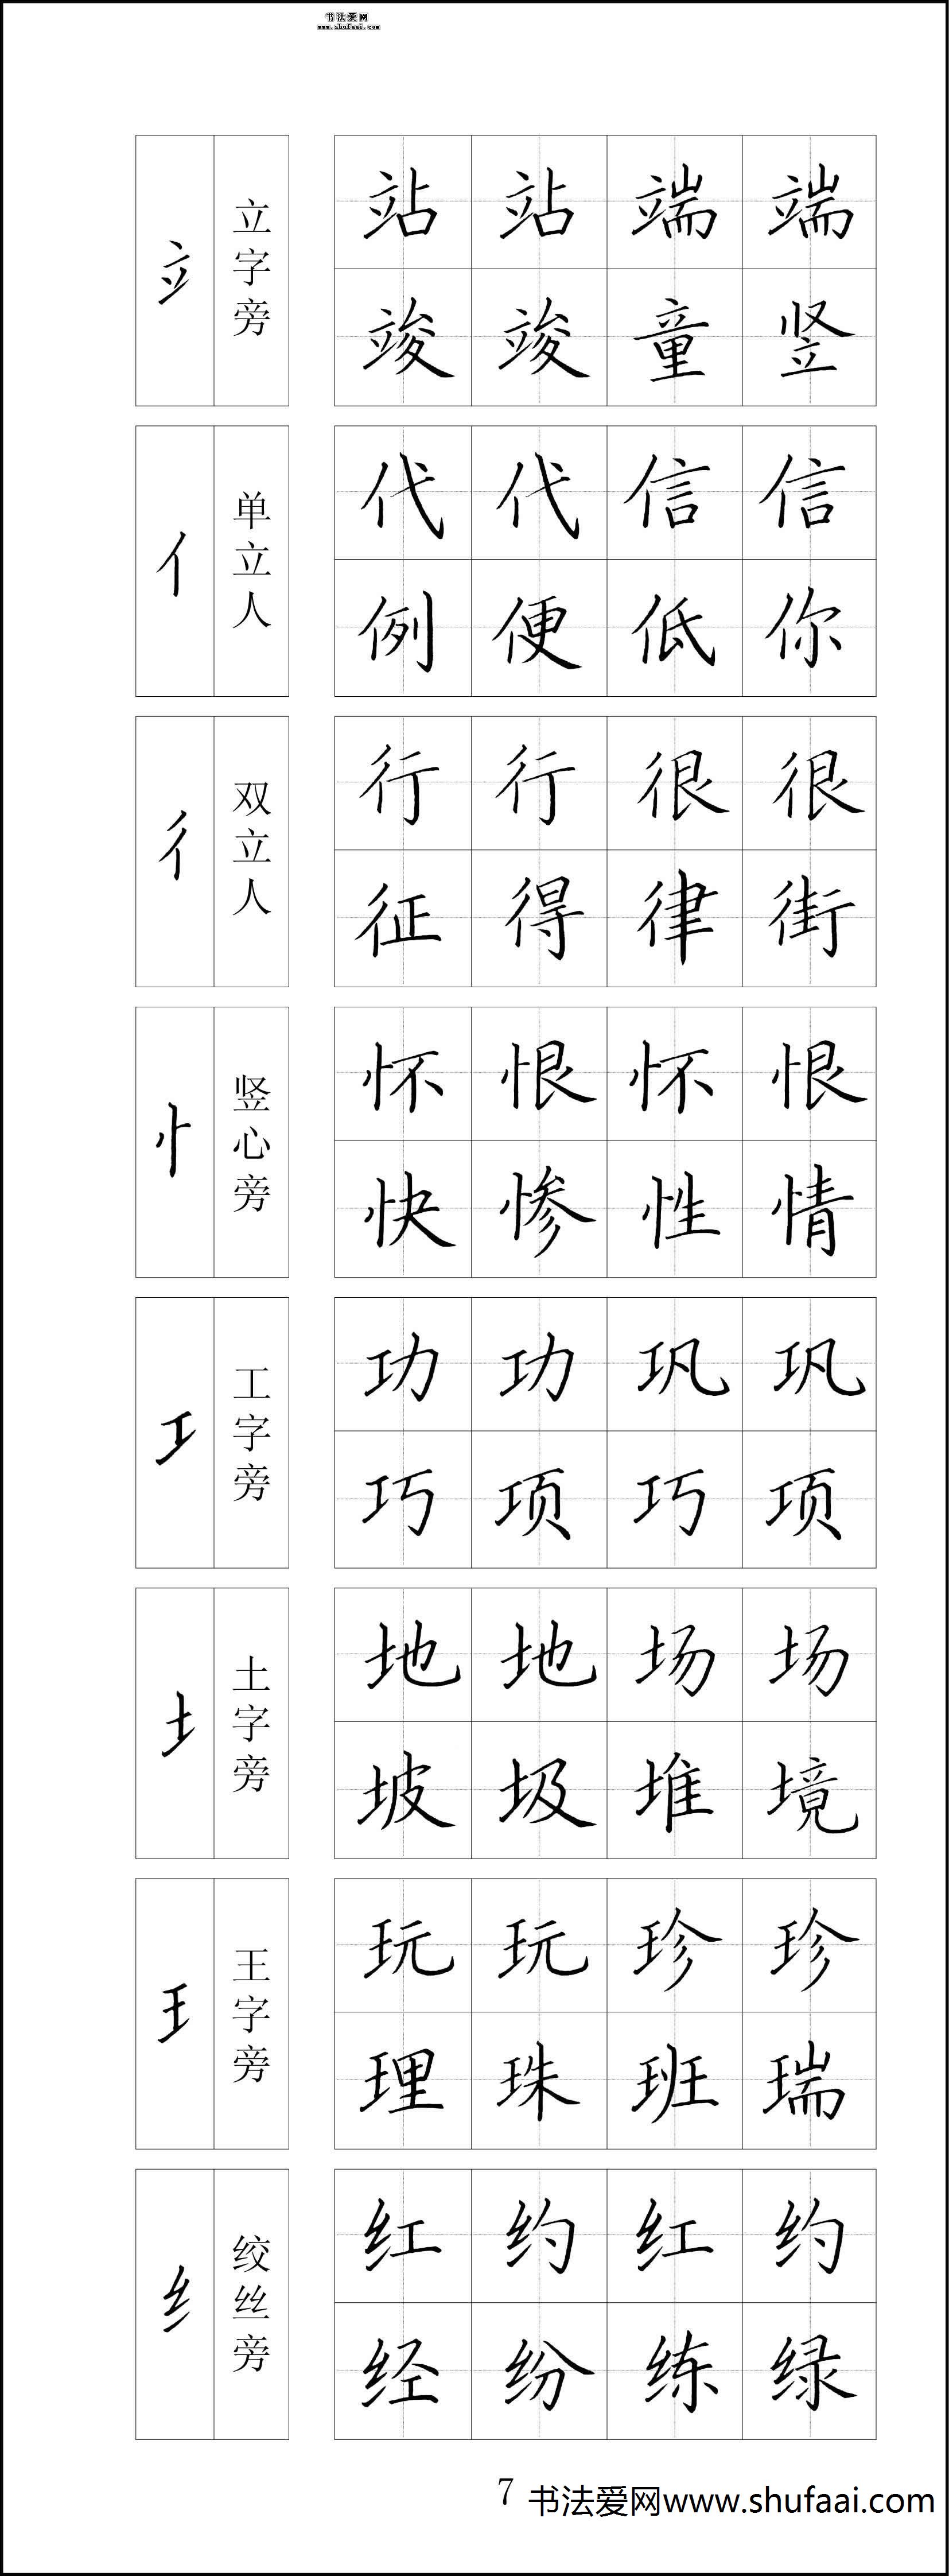 书法爱网
www.shufaai.com
立字旁
站站端端
竣竣童竖
亻
单立人
代代信信
例便低你
彳
双立人
行行很很
征得律街
忄
竖心旁
怀恨怀恨
快惨性情
工
工字旁
功功巩巩
巧项巧项
土
土字旁
地地场场
坡圾堆境
王
王字旁
玩玩珍珍
理珠班瑞
纟
绞丝旁
红约红约
经纷练绿
7
书法爱网www.shufaai.com